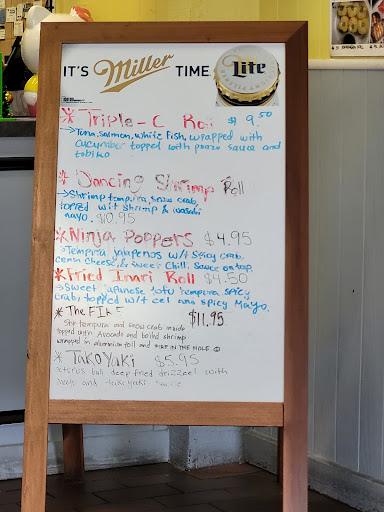 IT'S Miller TIME Lite
* Triple-C Roi $9.50
→Tuna, Salmon, White Fish, wrapped with
cucumber topped with ponzu sauce and
tobiko
* Dancing Shrimp Roll
→Shrimp tempura, snow crab,
topped wit shrimp & wasabi
mayo. $10.95
*Ninja Poppers $4.95
→Tempura jalapenos w/t Spicy crab,
cream cheese, & sweet chili sauce on top.
*Fried Inari Roll $4.50
→Sweet Japanese tofu tempura, spicy
crab, topped w/t eel and spicy Mayo.
* The FIRE $11.95
Shr tempura and snow crab inside
topped with Avocado and boiled shrimp
wrapped in aluminum foil and FIRE IN THE HOLE
* TAKOYAKI $5.95
octopus ball deep fried drizzeel with
mayo and teriyaki sauce